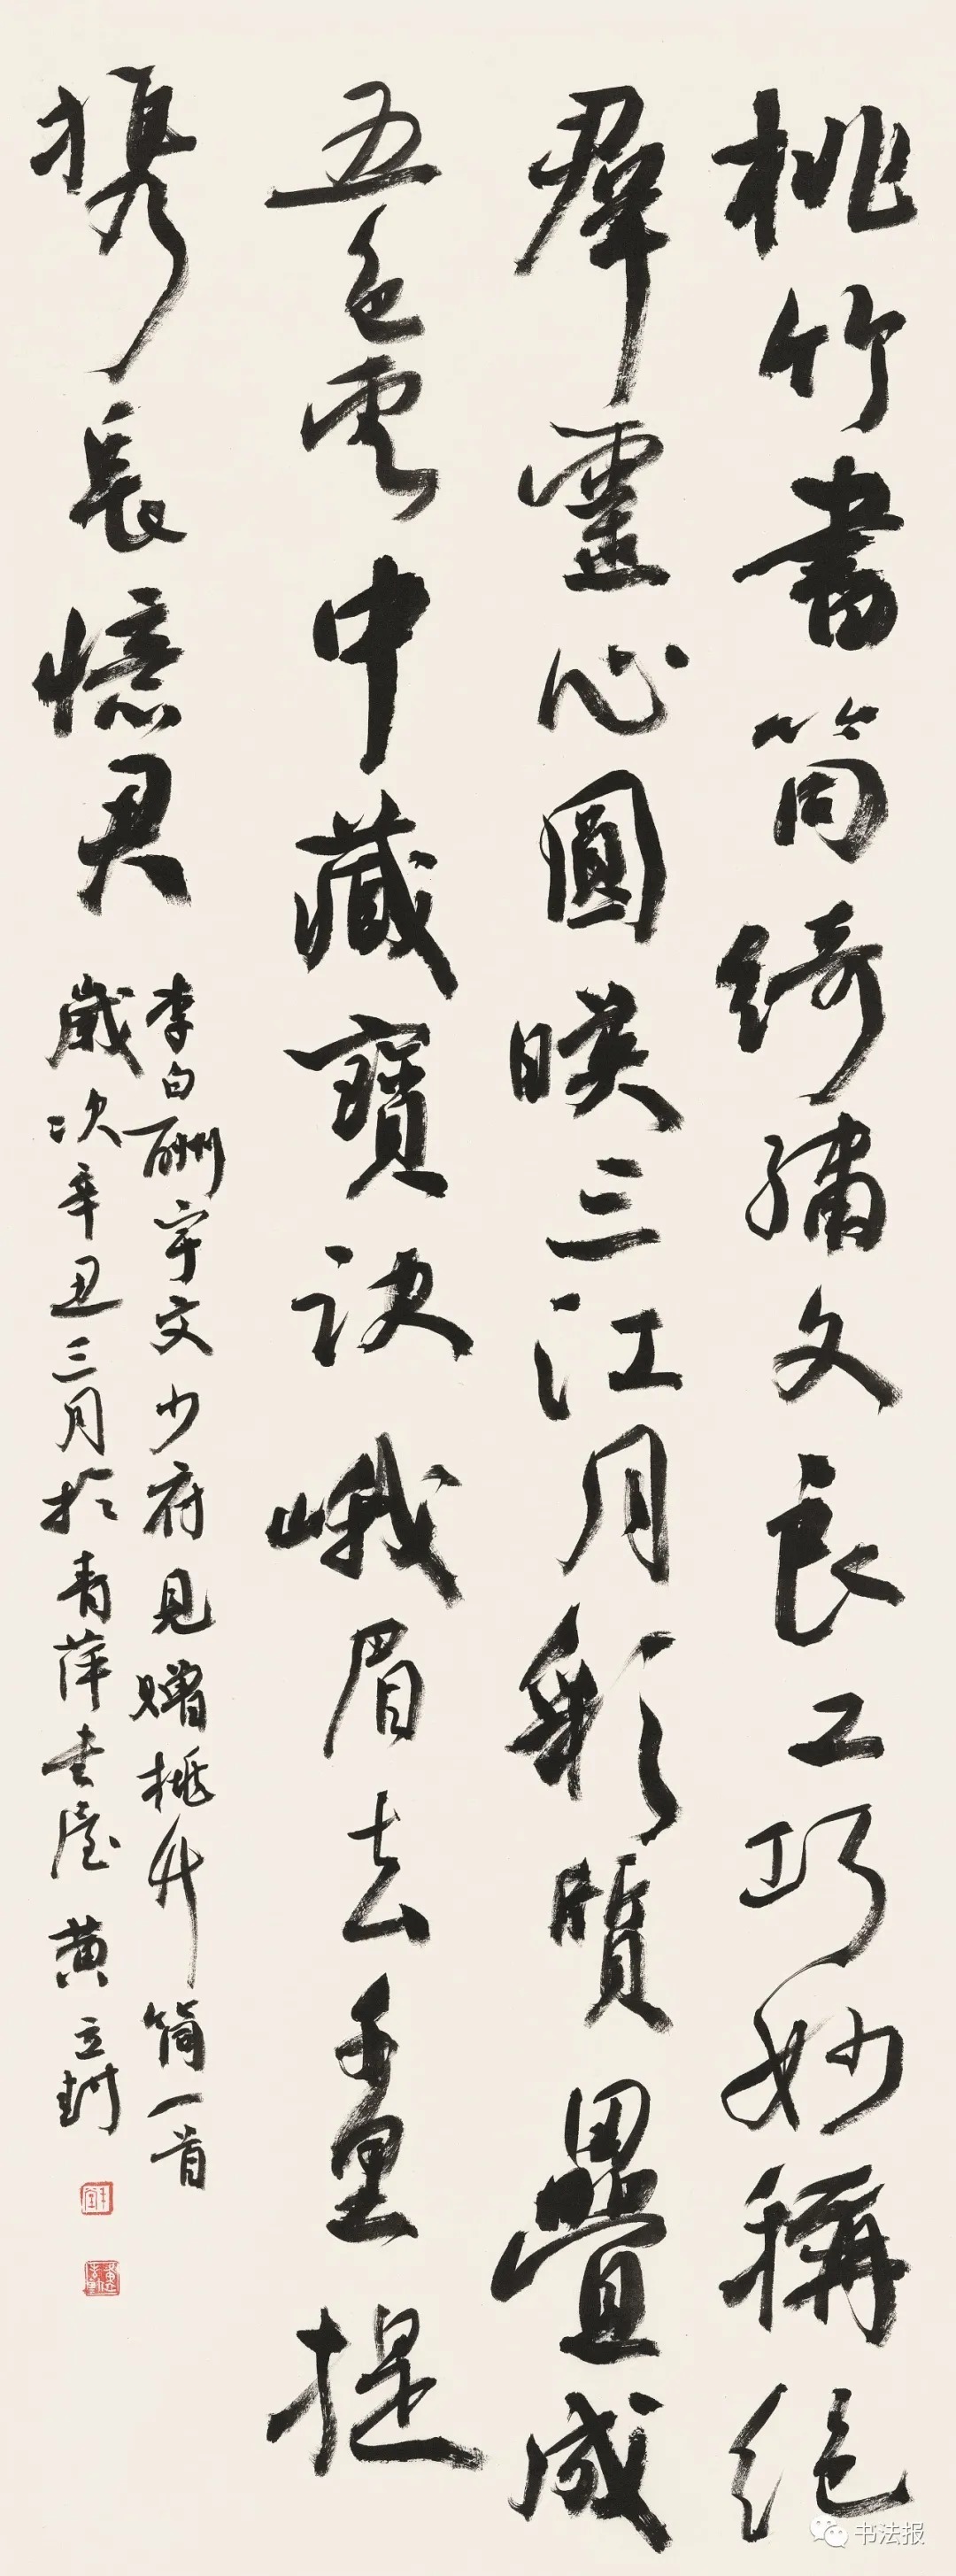 桃竹書筒綺繡文良工巧妙稱絕
群靈心圓暎三江月彩質疊成
五色雲中藏寶訣峨眉去千里提
携長憶君
李白酬宇文少府見贈桃竹筒一首
歲次辛丑三月於青萍書屋 黄立
书法报